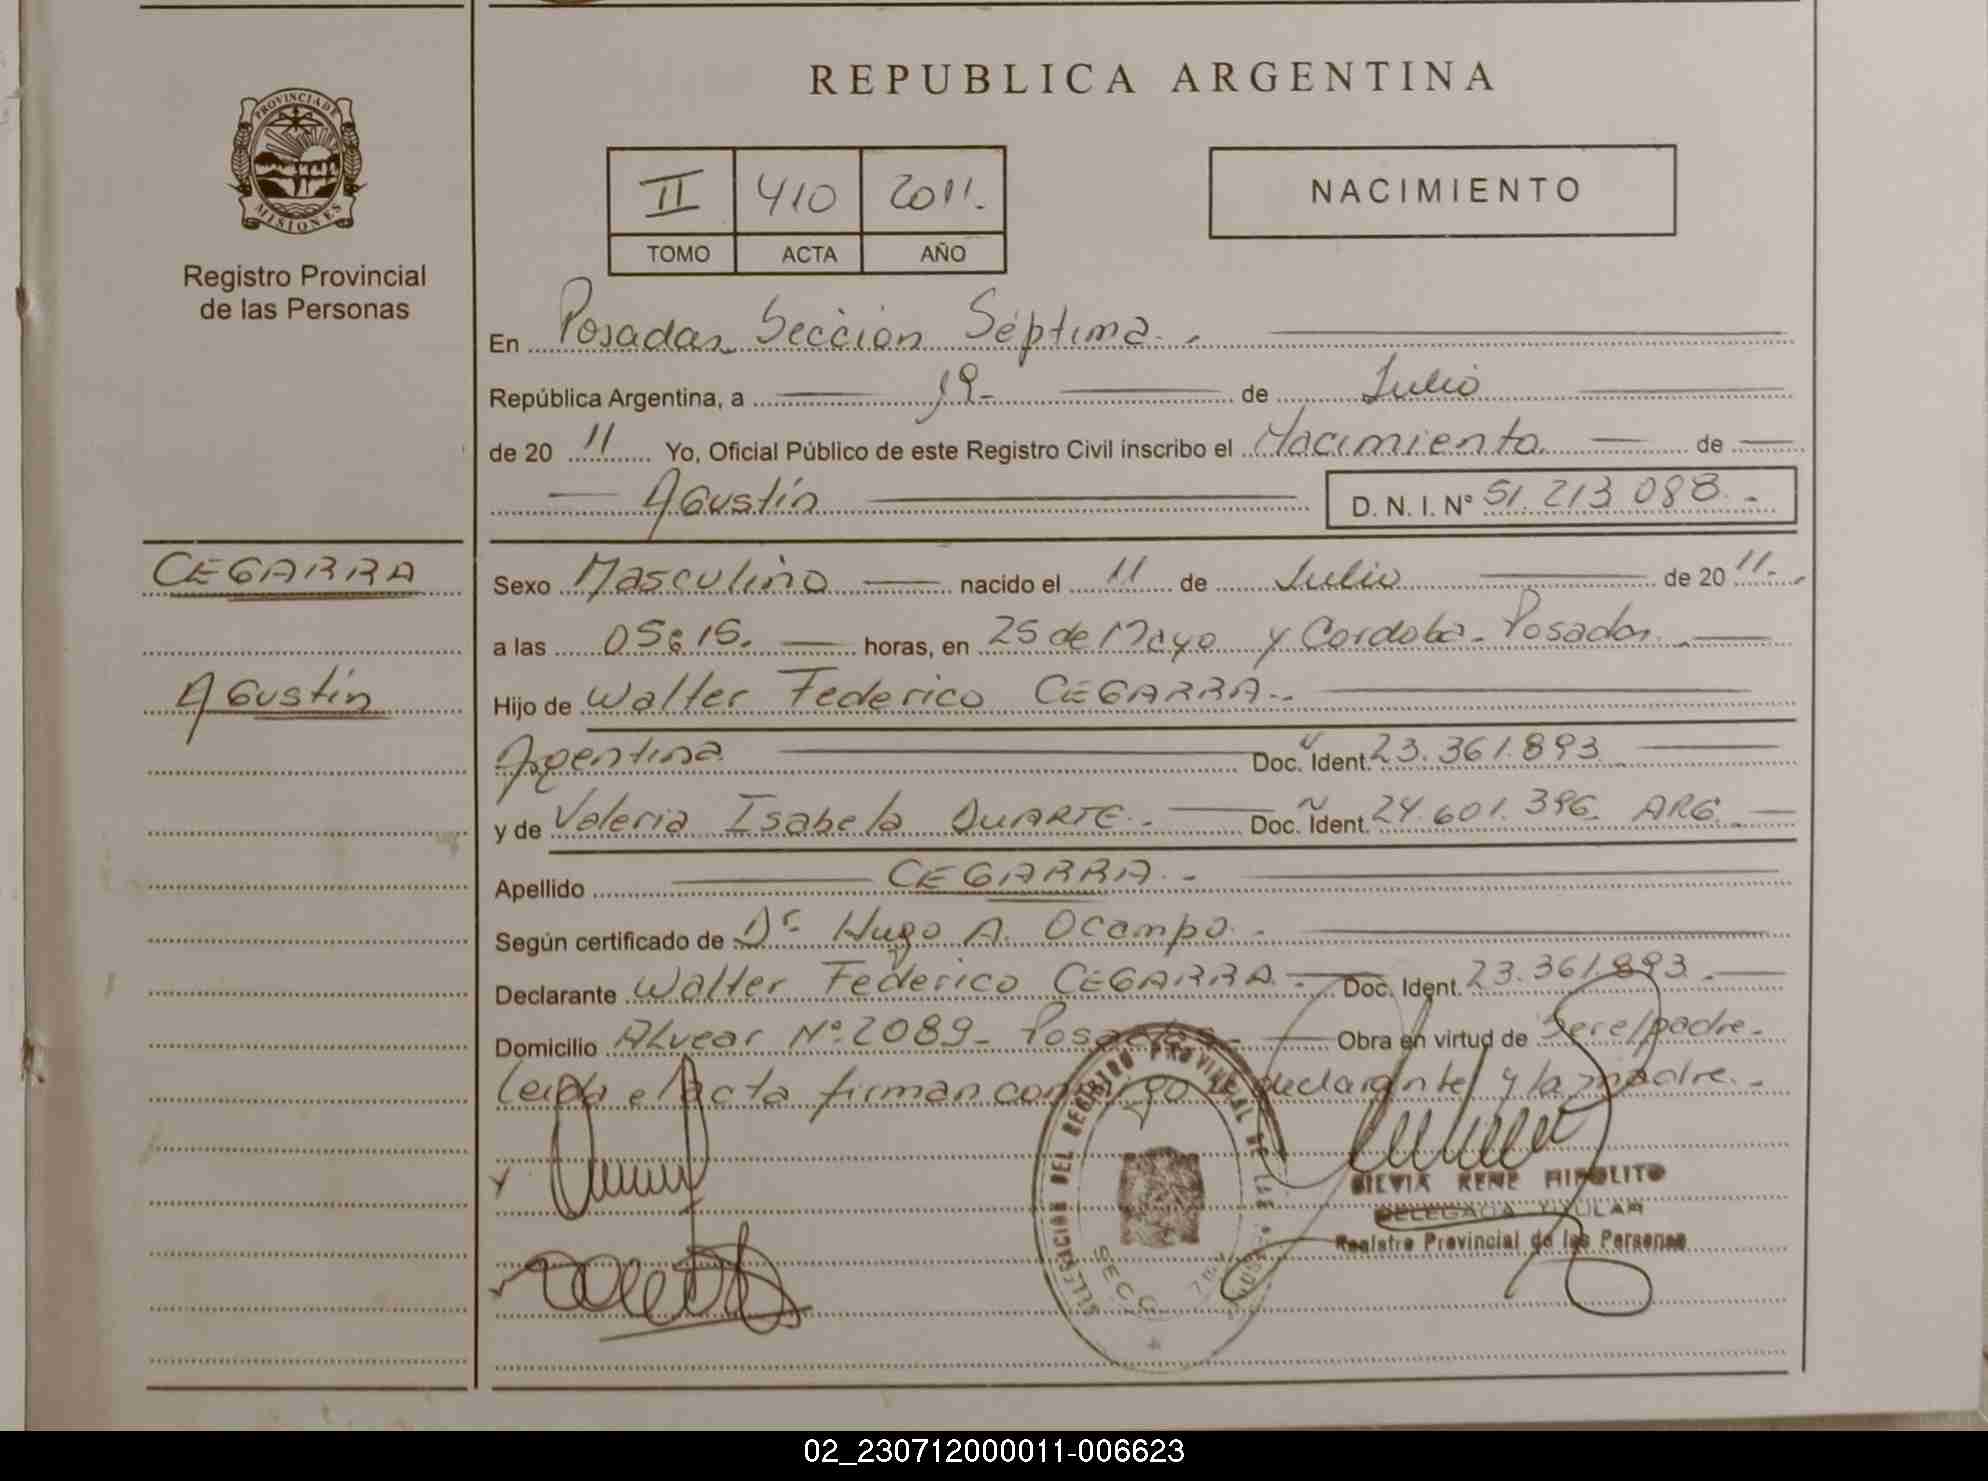 REPUBLICA ARGENTINA
PROVINCIA DE
MISIONES
Registro Provincial
de las Personas
II 410 2011.
TOMO ACTA AÑO
NACIMIENTO
En Posadas Sección Séptima.
República Argentina, a 19- de Julio
de 20 11 Yo, Oficial Público de este Registro Civil inscribo el Nacimiento de
Agustín D. N. I. Nº 51.213.088.-
CEGARRA
Agustín
Sexo Masculino nacido el 11 de Julio de 20 11.-
a las 05 horas, en 25 de Mayo y Cordoba- Posadas
Hijo de Walter Federico CEGARRA.-
Argentina Doc. Ident. 23.361.893
y de Valeria Isabela DUARTE.- Doc. Ident. 24.601.396. ARG.
Apellido CEGARRA.-
Según certificado de Dr. Hugo A. Ocampo.-
Declarante Walter Federico CEGARRA.- Doc. Ident. 23.361.893.
Domicilio Alvear Nº 2089- Posadas- Obra en virtud de Ser el padre.-
Leida el acta firman conmigo el declarante y la madre.-
DELEGACION DEL REGISTRO PROVINCIAL DE LAS
SECC.
SILVIA RENE HIPOLITO
DELEGADA TITULAR
Registro Provincial de las Personas
02_230712000011-006623